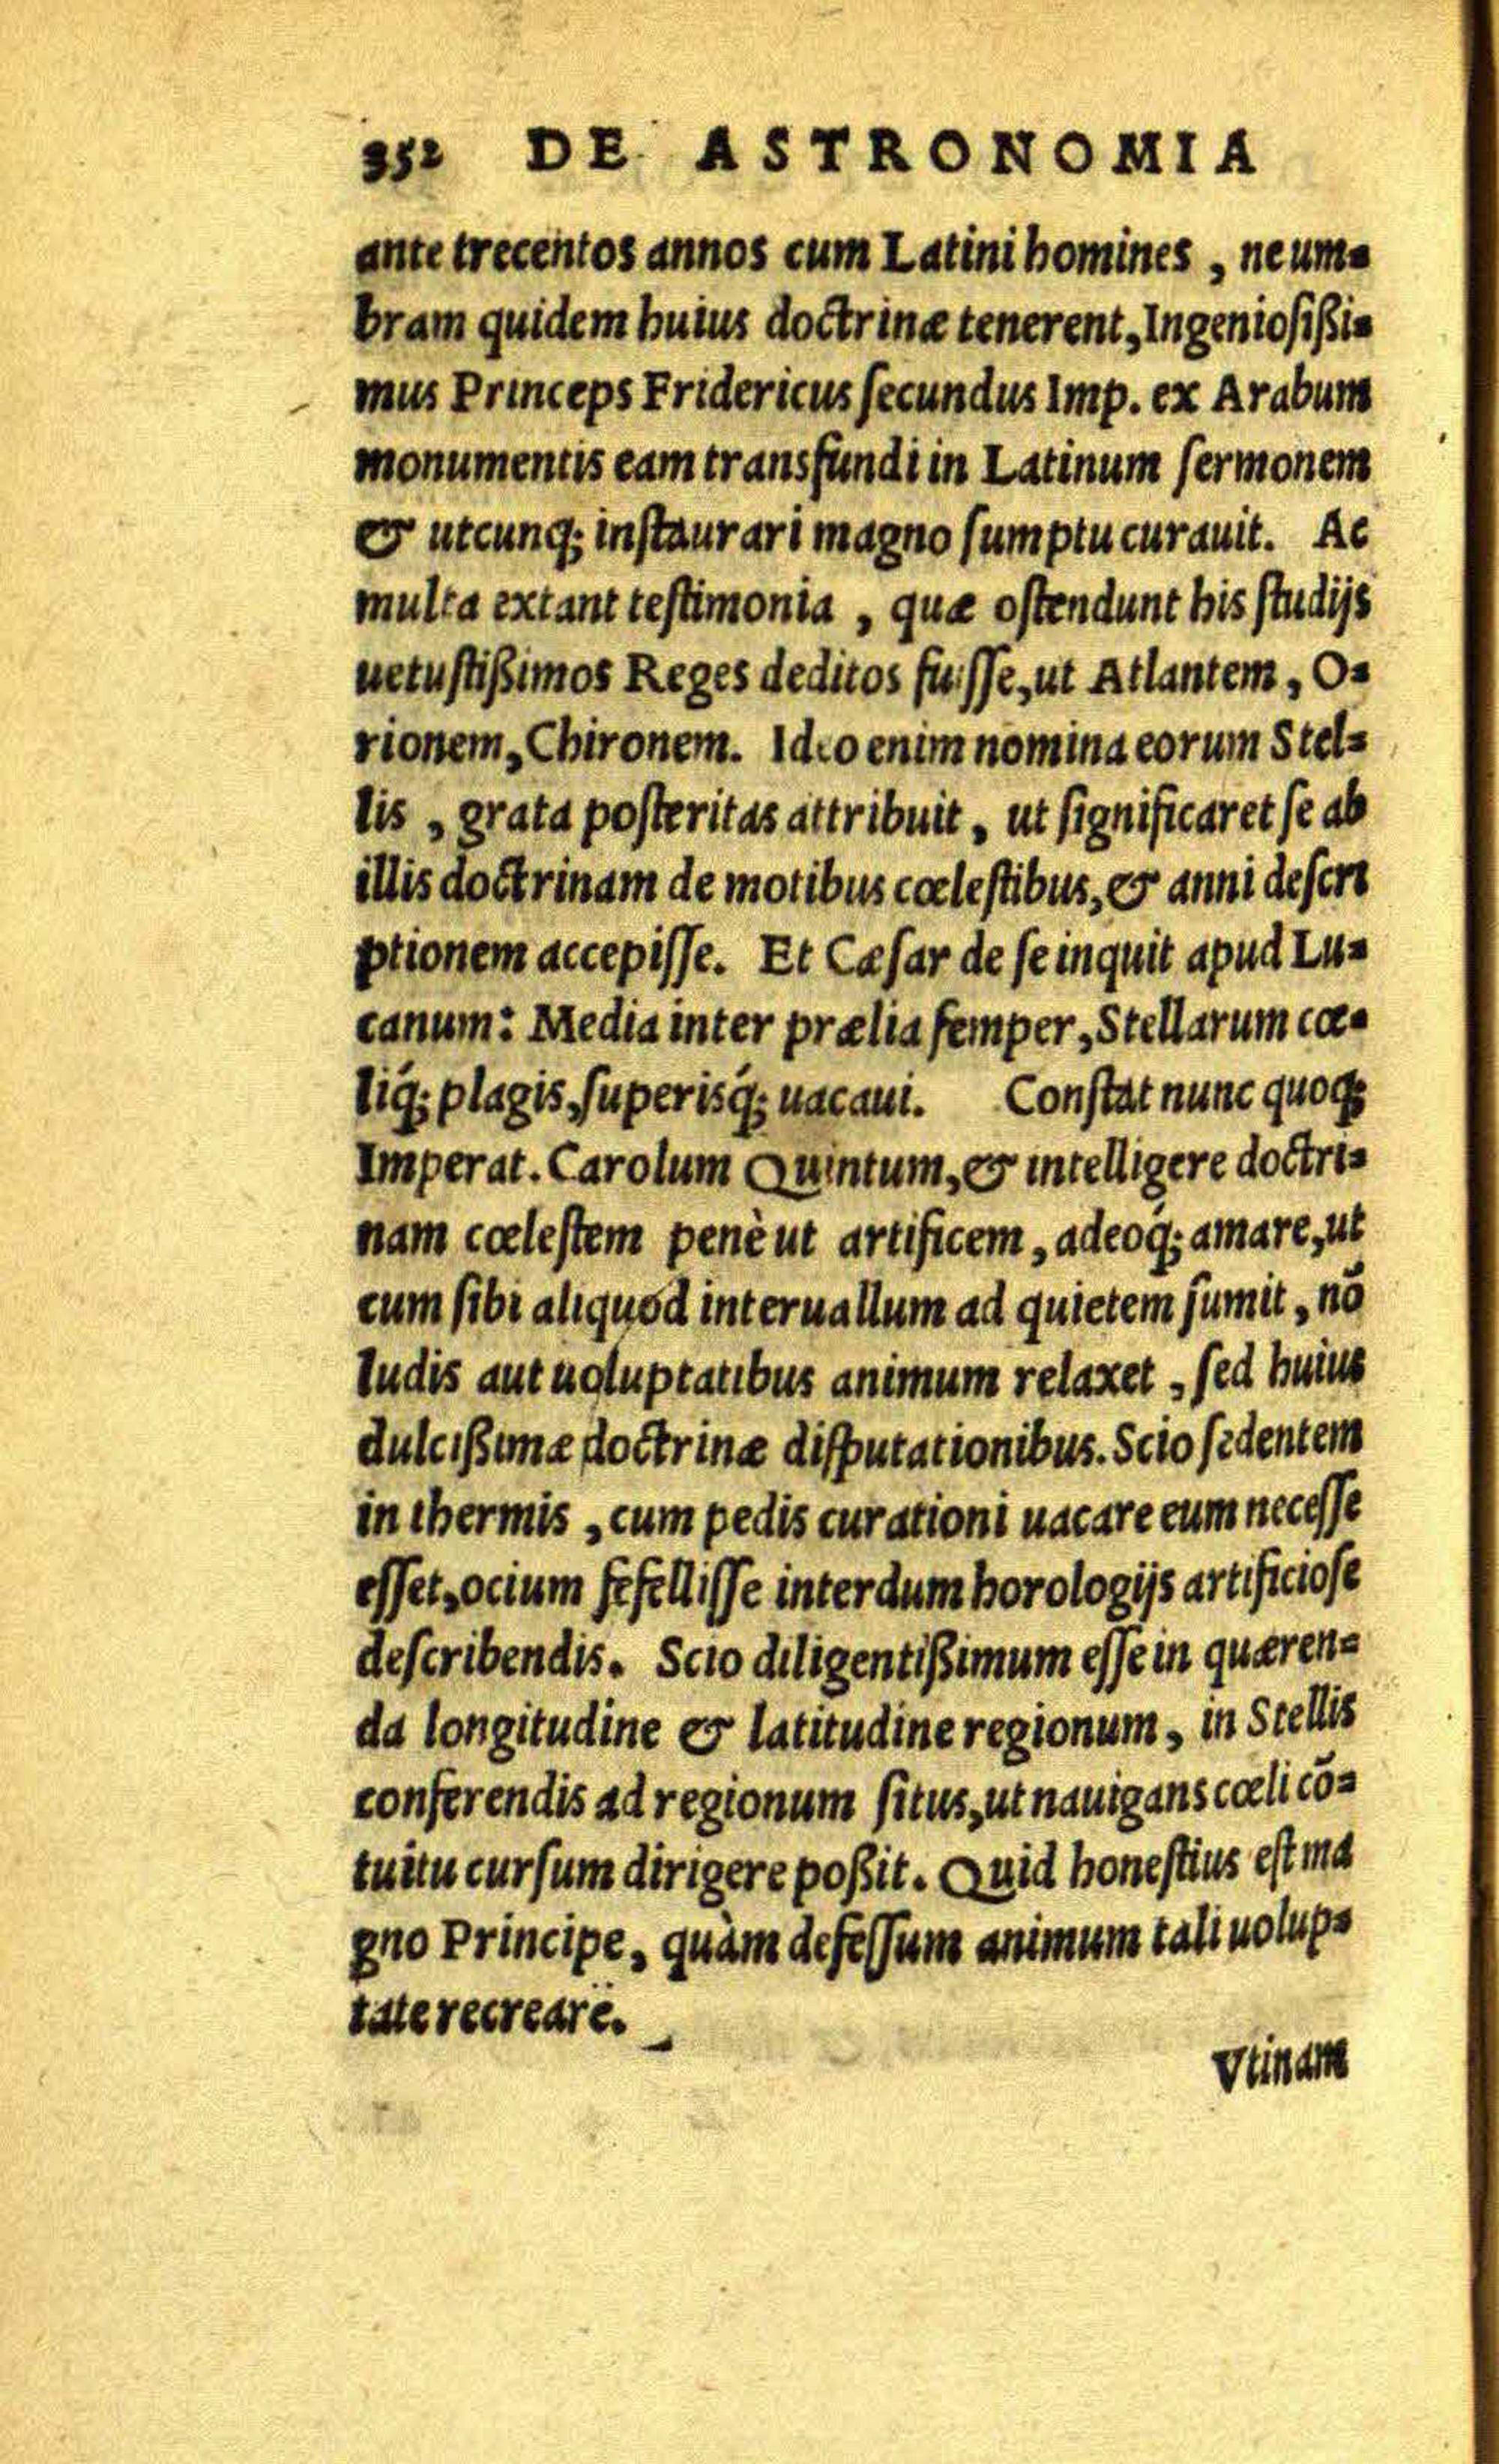 352 DE ASTRONOMIA
ante trecentos annos cum Latini homines, ne um=
bram quidem huius doctrinæ tenerent, Ingeniosißi=
mus Princeps Fridericus ſecundus Imp. ex Arabum
monumentis eam transfundi in Latinum ſermonem
& utcunq; inſtaurari magno ſumptu curauit. Ac
multa extant teſtimonia, quæ oſtendunt his ſtudijs
uetuſtißimos Reges deditos fuiſſe, ut Atlantem, O=
rionem, Chironem. Ideo enim nomina eorum Stel=
lis, grata poſteritas attribuit, ut ſignificaret ſe ab
illis doctrinam de motibus cœleſtibus, & anni deſcri
ptionem accepiſſe. Et Cæſar de ſe inquit apud Lu=
canum: Media inter prælia ſemper, Stellarum cœ=
liq́; plagis, ſuperisq́; uacaui. Conſtat nunc quoq;
Imperat. Carolum Quintum, & intelligere doctri=
nam cœleſtem penè ut artificem, adeoq́; amare, ut
cum ſibi aliquod interuallum ad quietem ſumit, nõ
ludis aut uoluptatibus animum relaxet, ſed huius
dulcißimæ doctrinæ diſputationibus. Scio ſedentem
in thermis, cum pedis curationi uacare eum neceſſe
eſſet, ocium fefelliſſe interdum horologijs artificioſe
deſcribendis. Scio diligentißimum eſſe in quæren=
da longitudine & latitudine regionum, in Stellis
conferendis ad regionum ſitus, ut nauigans cœli cõ=
tuitu curſum dirigere poßit. Quid honeſtius eſt ma
gno Principe, quàm defeſſum animum tali uolup=
tate recreare.
Vtinam